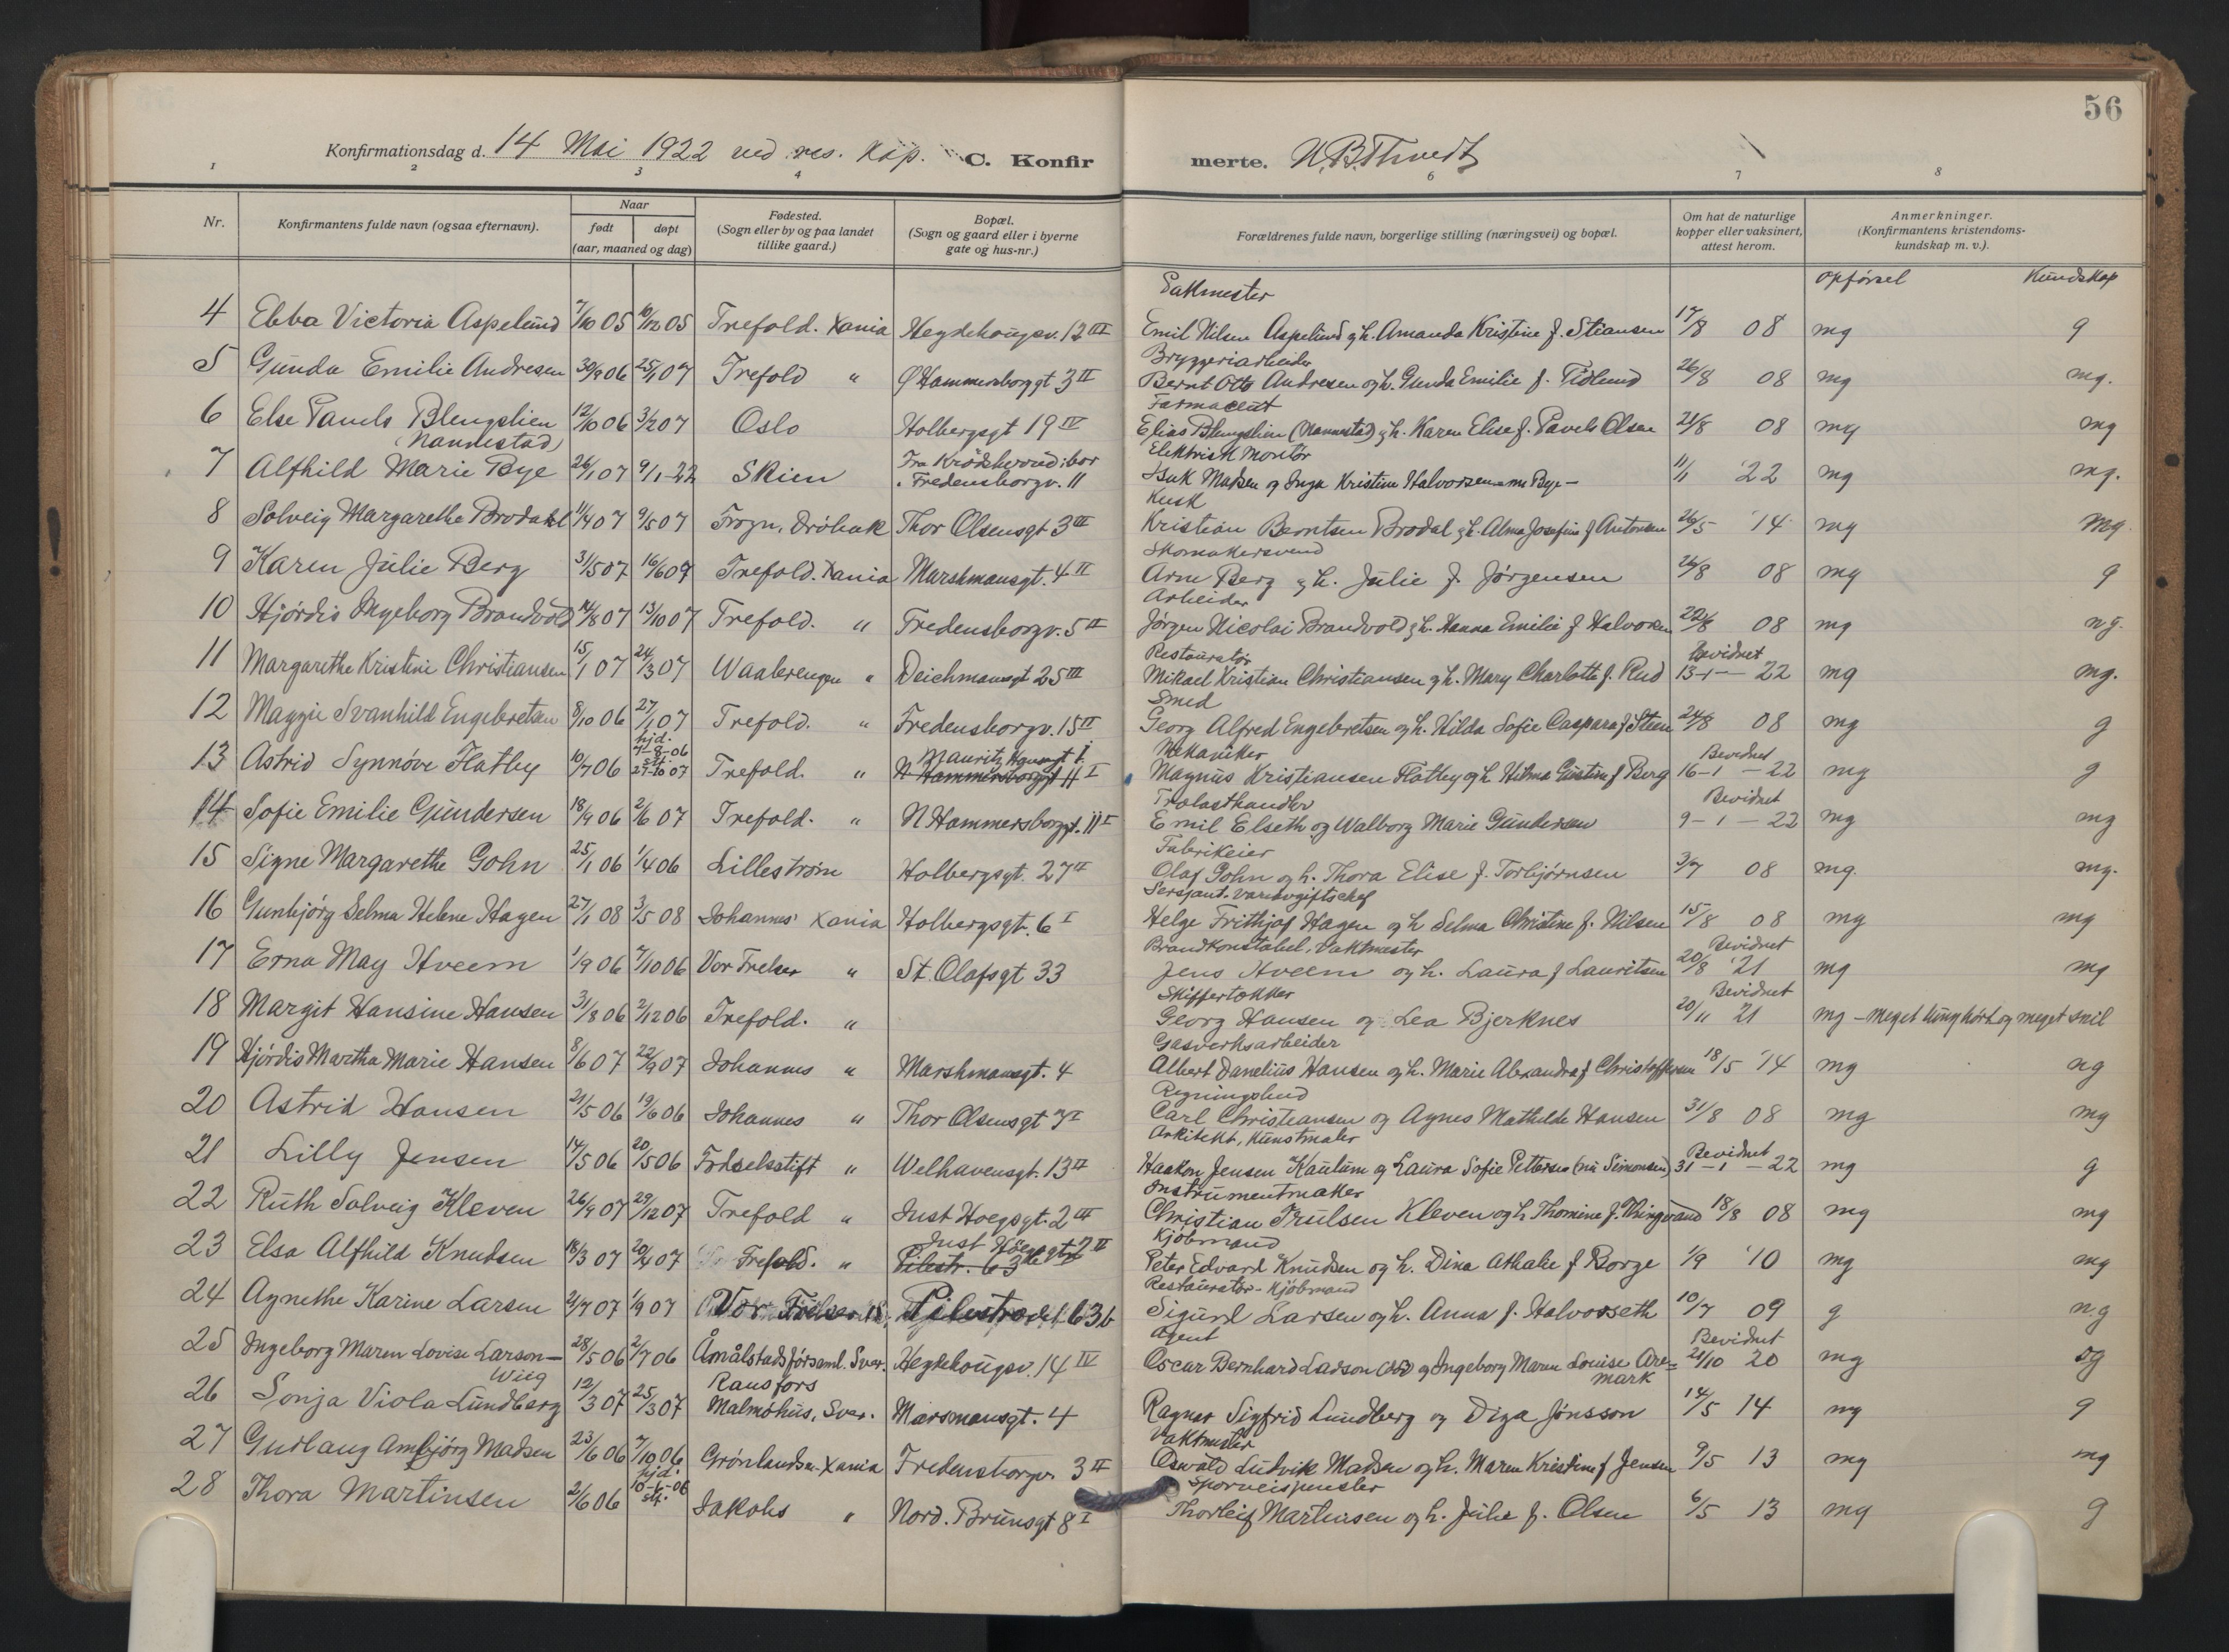 56
Konfirmationsdag d. 14 Mai 1922 ved res. Kap. C. Konfir merte.
1 2 3 4 6 7 8
Nr. Konfirmantens fulde navn (ogsaa efternavn). Naar født døpt (aar, maaned og dag) Fødested. (Sogn eller by og paa landet tillike gaard.) Bopæl. (Sogn og gaard eller i byerne gate og hus-nr.) Forældrenes fulde navn, borgerlige stilling (næringsvei) og bopæl. Om hat de naturlige kopper eller vaksinert, attest herom. Anmerkninger. (Konfirmantens kristendoms-kundskap m. v.).
opførsel Kundskap
Sakmester
4 Ebba Victoria Aspelund 7/10 05 10/12 05 Trefold. Xania Hegdehougsv. 12 III Emil Nilsen Aspelund og h. Amanda Kristine f. Stiansen 17/8 08 mg g
Bryggeriarbeider
5 Gunda Emilie Andresen 30/9 06 25/1 07 Trefold " Ø Hammersborggt 3 II Bernt Otto Andresen og h. Gunda Emilie f. Tidlund 26/8 08 mg mg.
Farmaceut
6 Else Pauels Blengslien (Nannestad) 12/10 06 3/2 07 Oslo Holbergsgt 19 IV Elias Blengslien (Nannestad) og h. Karen Elise f. Pavels Olsen 21/8 08 mg mg
Elektrisk Montør
7 Alfhild Marie Bye 26/1 07 9/1-22 Skien Fra Krødsherred: bor Fredensborgv. 11 Isak Madsen og Inga Kristine Halvorsen nu Bye - 11/1 '22 mg mg.
Kusk
8 Solveig Margarethe Brodahl 11/4 07 9/5 07 Frogn, Drøbak Thor Olsensgt 3 III Kristian Berntsen Brodal og h. Alma Josefine f Antonsen 26/5 '14 mg mg.
Skomakersvend
9 Karen Julie Berg 31/5 07 16/6 07 Trefold. Xania Marshmansgt. 4 II Arne Berg og h. Julie f. Jørgensen 26/8 08 mg g
Arbeider
10 Hjørdis Ingeborg Brandvold 14/8 07 13/10 07 Trefold. " Fredensborgv. 5 II Jørgen Nicolai Brandvold og h. Hanna Emilie f Halvorsen 22/8 08 mg ng.
Restauratør Bevidnet
11 Margarethe Kristine Christiansen 15/1 07 24/3 07 Waalerengen " Deichmansgt 25 III Mikael Kristian Christiansen og h. Mary Charlotte f. Rud 13-1-22 mg mg.
Smed
12 Maggie Svanhild Engebretsen 8/10 06 27/1 07 Trefold. " Fredensborgv. 15 II Georg Alfred Engebretsen og h. Hilda Sofie Caspara f Steen 24/8 08 mg g
Mekaniker Bevidnet
13 Astrid Synnøve Flatby 10/7 06 hjd. 7-8-06 stf. 27-10 07 Trefold. " N Hammersborggt 11 I Magnus Kristiansen Flatby og h Hilma Gustine f Berg 16-1-22 mg g
Trælasthandler Bevidnet
14 Sofie Emilie Gundersen 18/9 06 2/6 07 Trefold. " N Hammersborggt. 11 I Emil Elseth og Walborg Marie Gundersen 9-1-22 mg mg
Fabrikeier
15 Signe Margarethe Gohn 25/1 06 1/4 06 Lillestrøm Holbergsgt. 27 II Olaf Gohn og h. Thora Elise f. Torbjørnsen 3/7 08 mg. mg.
Sersjant. Vareavgiftschef
16 Gunbjørg Selma Helene Hagen 27/1 08 3/5 08 Johannes' Xania Holbergsgt. 6 I Helge Frithjof Hagen og h Selma Christine f. Nilsen 15/8 08 mg mg
Brandkonstabel, Vaktmester Bevidnet
17 Erna May Hveem 1/9 06 7/10 06 Vor Frelser " St. Olafsgt 33 Jens Hveem og h. Laura f Lauritsen 20/8 '21 mg mg
Skiffertekker Bevidnet
18 Margit Hansine Hansen 31/8 06 2/12 06 Trefold. " Georg Hansen og Lea Bjerknes 20/11 21 mg - meget tunghørt og meget snil
Gasverksarbeider
19 Hjørdis Martha Marie Hansen 8/6 07 22/9 07 Johannes " Marshmansgt. 4 Albert Danelius Hansen og h. Marie Alexandra f Christoffersen 18/5 '14 mg ng
Regningsbud
20 Astrid Hansen 21/5 06 19/6 06 Johannes " Thor Olsensgt 7 I Carl Christiansen og Agnes Mathilde Hansen 31/8 08 mg mg
Arkitekt, Kunstmaler Bevidnet
21 Lilly Jensen 14/5 06 20/5 06 Fødselsstift " Welhavensgt. 13 II Haakon Jensen Kaulum og Laura Sofie Pettersen (nu Simonsen) 31-1-22 mg g
Instrumentmaker
22 Ruth Solveig Kleven 26/9 07 29/12 07 Trefold " Just Hoegsgt. 2 III Christian Trulsen Kleven og h Thomine f. Thingvand 18/8 08 mg mg
Kjøbmand
23 Elsa Alfhild Knudsen 18/3 07 20/4 07 Trefold. " Pilestr. 63 Peter Edvard Knudsen og h. Dina Athalie f Borge 1/9 '10 mg mg
Restauratør - Kjøbmand
24 Agnethe Karine Larsen 2/7 07 1/9 07 Vor Frelser Pilestrædet 63b Sigurd Larsen og h. Anna f. Halvorseth 10/7 09 g ng
Agent Bevidnet
25 Ingeborg Maren Lovise Larson-Wiig 28/5 06 2/7 06 Åmålstadsførsaml. Sver. Hegdehougsv. 14 IV Oscar Bernhard Larson og Ingeborg Maren Louise Aremark 21/10 20 mg sg
26 Sonja Viola Lundberg 12/3 07 25/3 07 Malmøhus, Sver. Marsmansgt. 4 Ragnar Sigfrid Lundberg og Diga Jønsson 14/5 14 mg g
Vaktmester
27 Gudlaug Ambjørg Madsen 23/6 06 7/10 06 Grønlands. Xania Fredensborgv. 3 II Oswald Ludvik Madsen og h. Maren Kristine f Jensen 9/5 13 mg mg
Sporveispenster
28 Thora Martinsen 2/6 06 hjd. 10-6-06 stf. Jakobs " Nord. Brunsgt 8 I Thorleif Martinsen og h. Julie f. Olsen 6/5 13 mg g